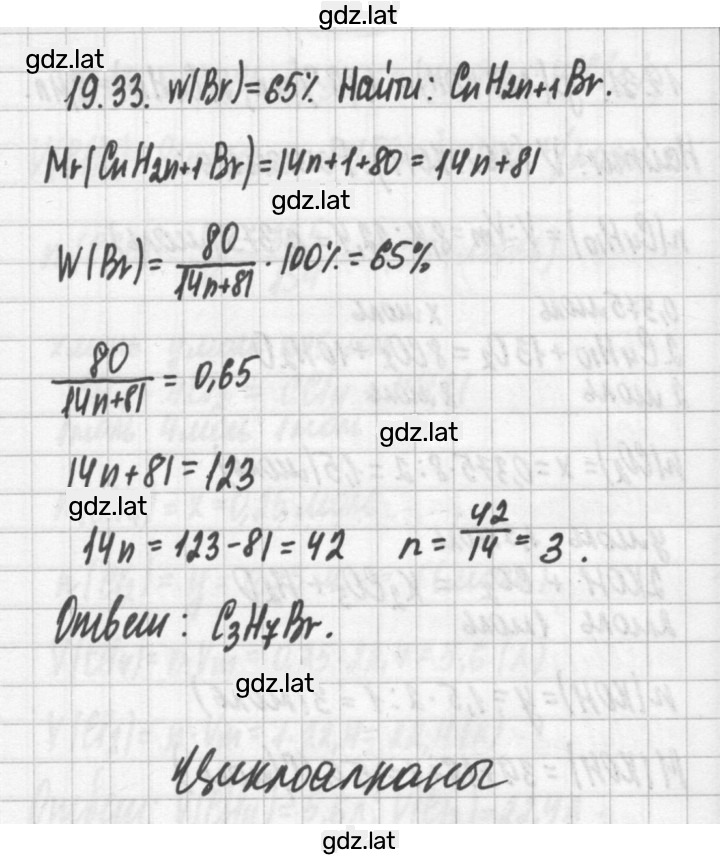 gdz.lat
gdz.lat
19.33. W(Br)=65% Найти: CnH2n+1Br.
Mr(CnH2n+1Br)=14n+1+80=14n+81
gdz.lat
W(Br)= 80/14n+81 · 100% = 65%
80/14n+81 = 0,65
gdz.lat
14n+81=123
gdz.lat
14n=123-81=42 n= 42/14 = 3.
Ответ: C3H7Br.
gdz.lat
Циклоалканы
gdz.lat